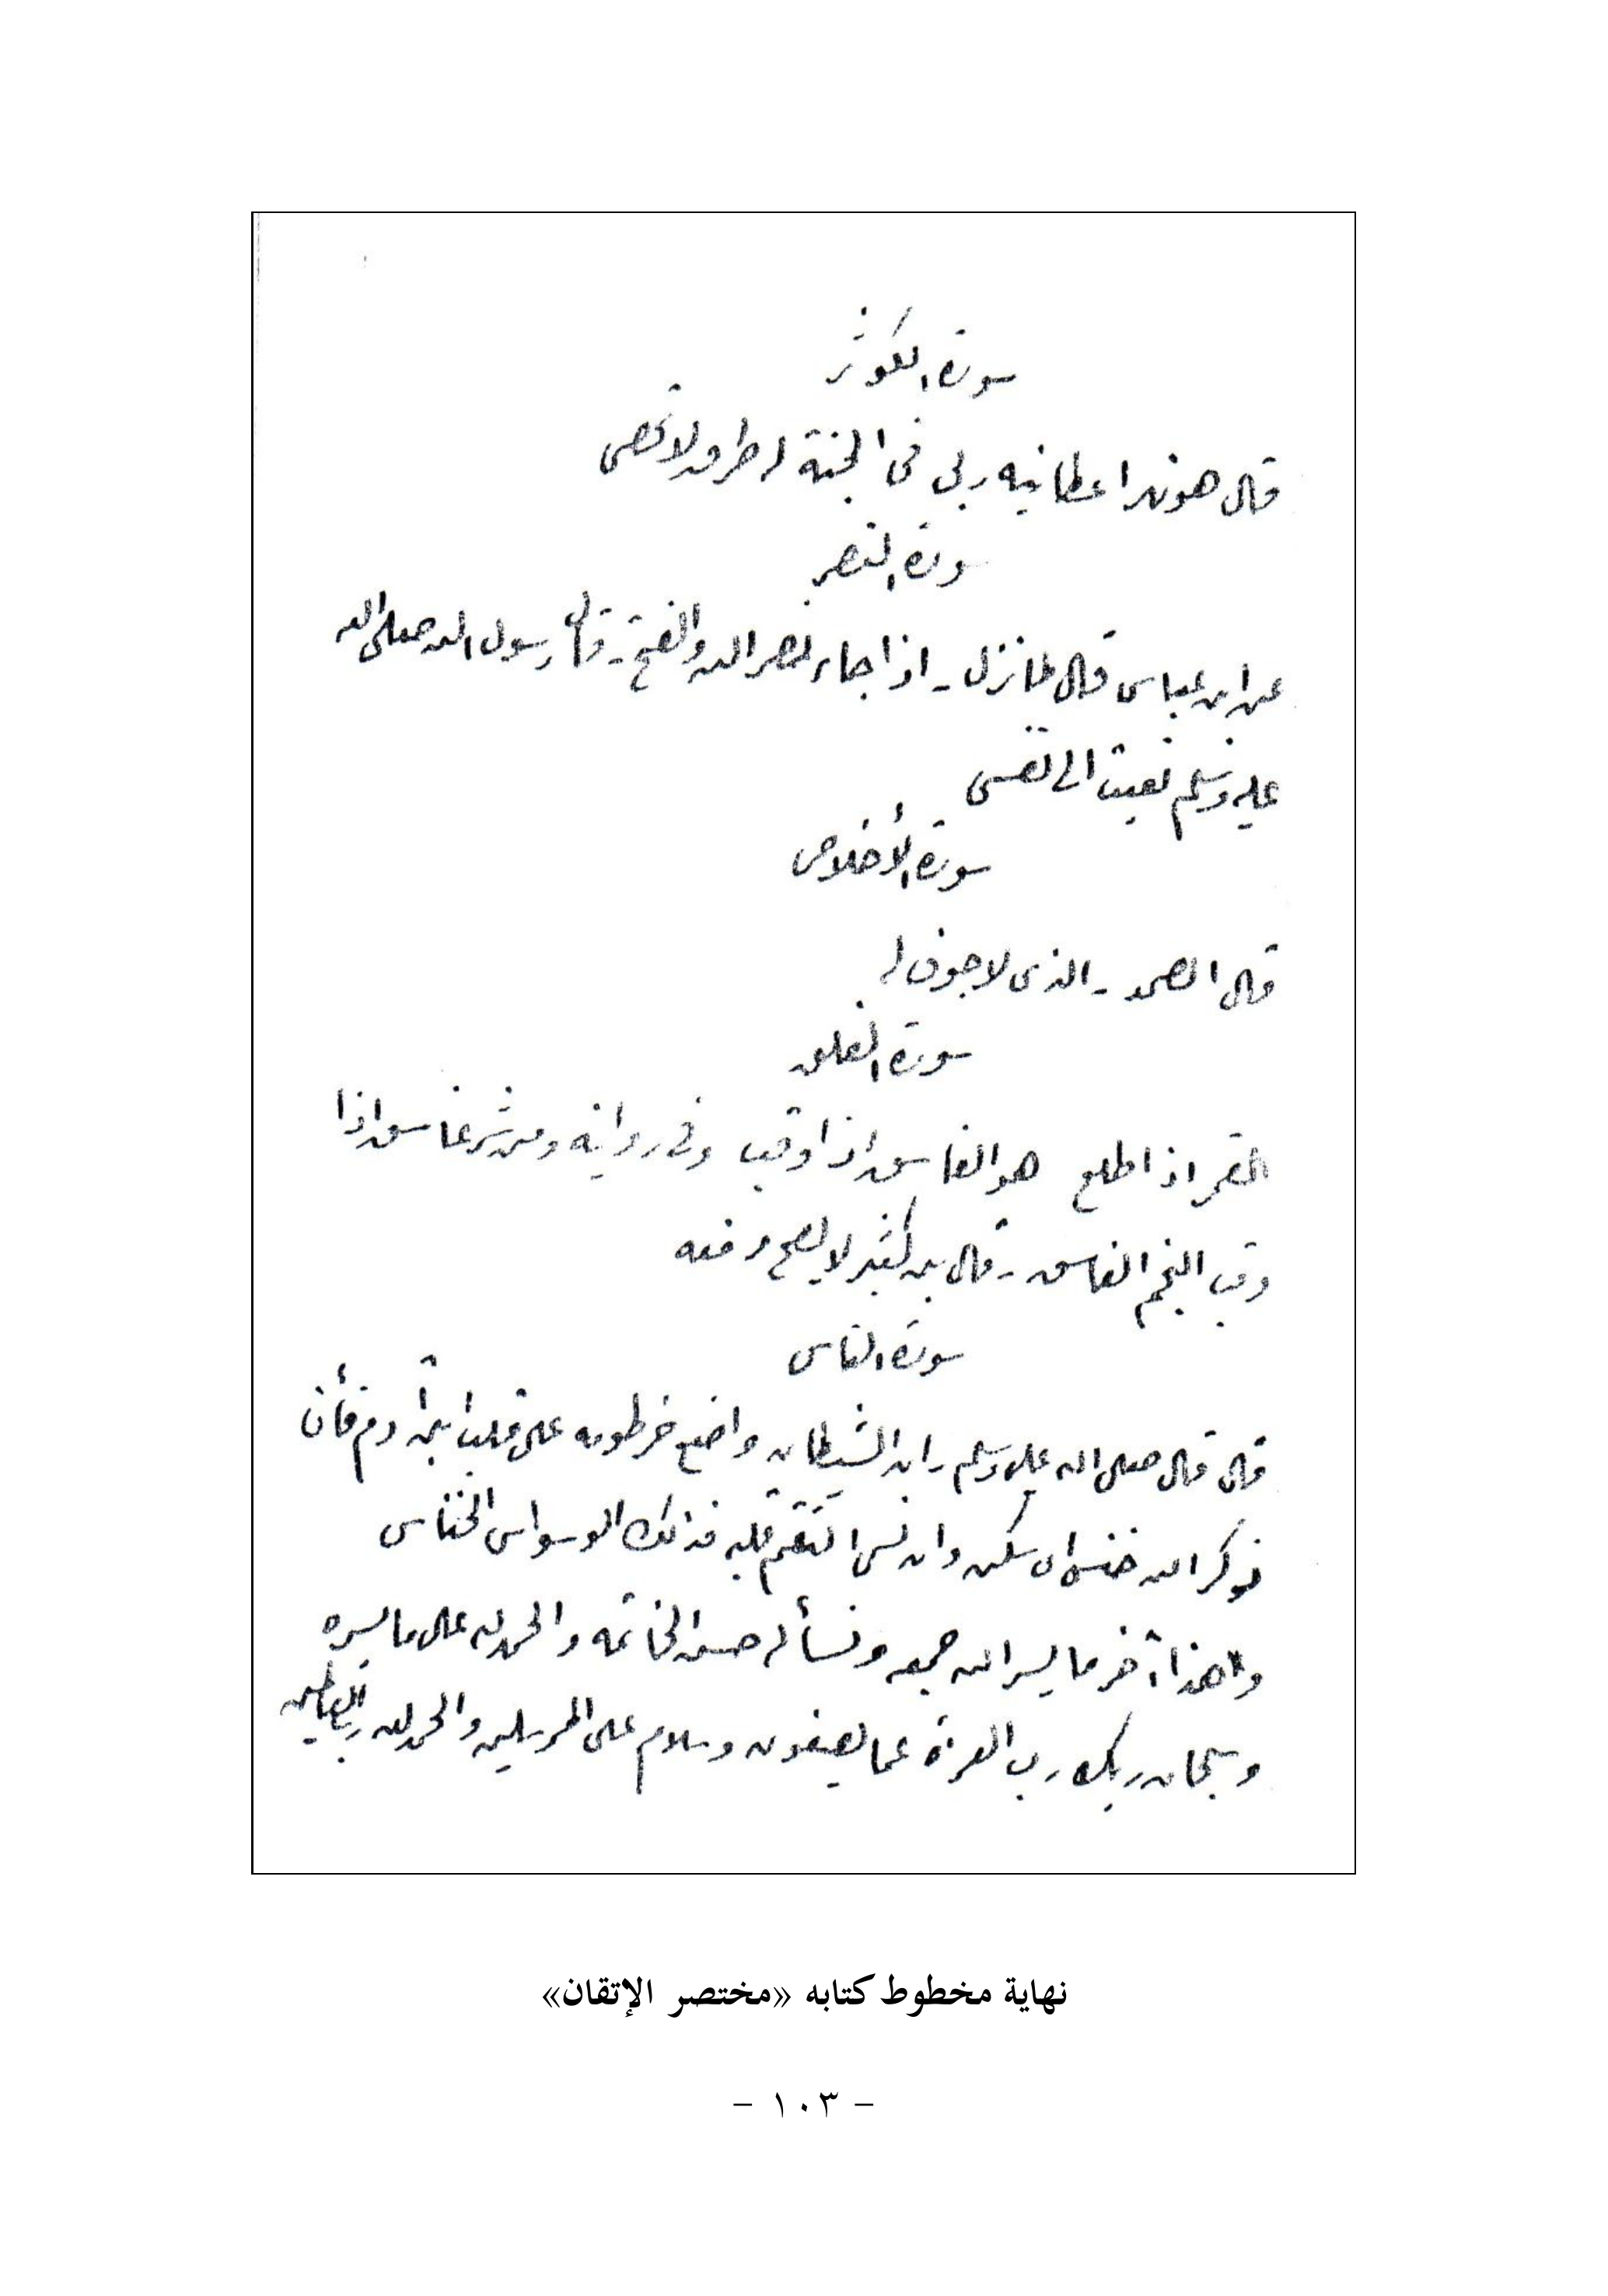 سورة الكوثر
قال هو نهر اعطانيه ربي في الجنة له طرق لا تحصى
سورة النصر
عن ابن عباس قال لما نزل - اذا جاء نصر الله والفتح - قال رسول الله صلى الله
عليه وسلم نعيت الى نفسى
سورة الأخلاص
قال الصمد - الذى لا جوف له
سورة الفلق
القمر اذا طلع هو الغاسق اذا وقب وفى رواية ومن شر غاسق اذا
وقب النجم الغاسق - قال بن كثير لا يصح رفعه
سورة الناس
قال قال صلى الله عليه وسلم - ان الشيطان واضع خرطومه على قلب ابن آدم فأن
ذكر الله خنس اى سكن وان نسى التقم قلبه فذلك الوسواس الخناس
وهذا آخر ما يسر الله جمعه ونسأله حسن الخاتمه والحمد لله على ما يسره
وسبحان ربك رب العزة عما يصفون وسلام على المرسلين والحمد لله رب العالمين
نهاية مخطوط كتابه «مختصر الإتقان»
- ١٠٣ -